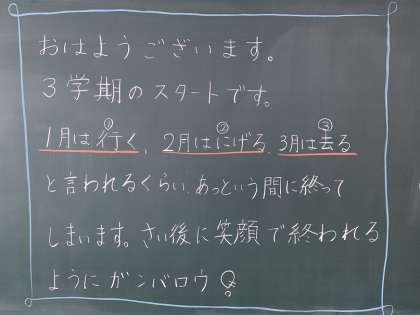 おはようございます。
3学期のスタートです。
① ② ③
1月は行く、2月はにげる、3月は去る
と言われるくらい、あっという間に終って
しまいます。さい後に笑顔で終われる
ようにガンバロウ